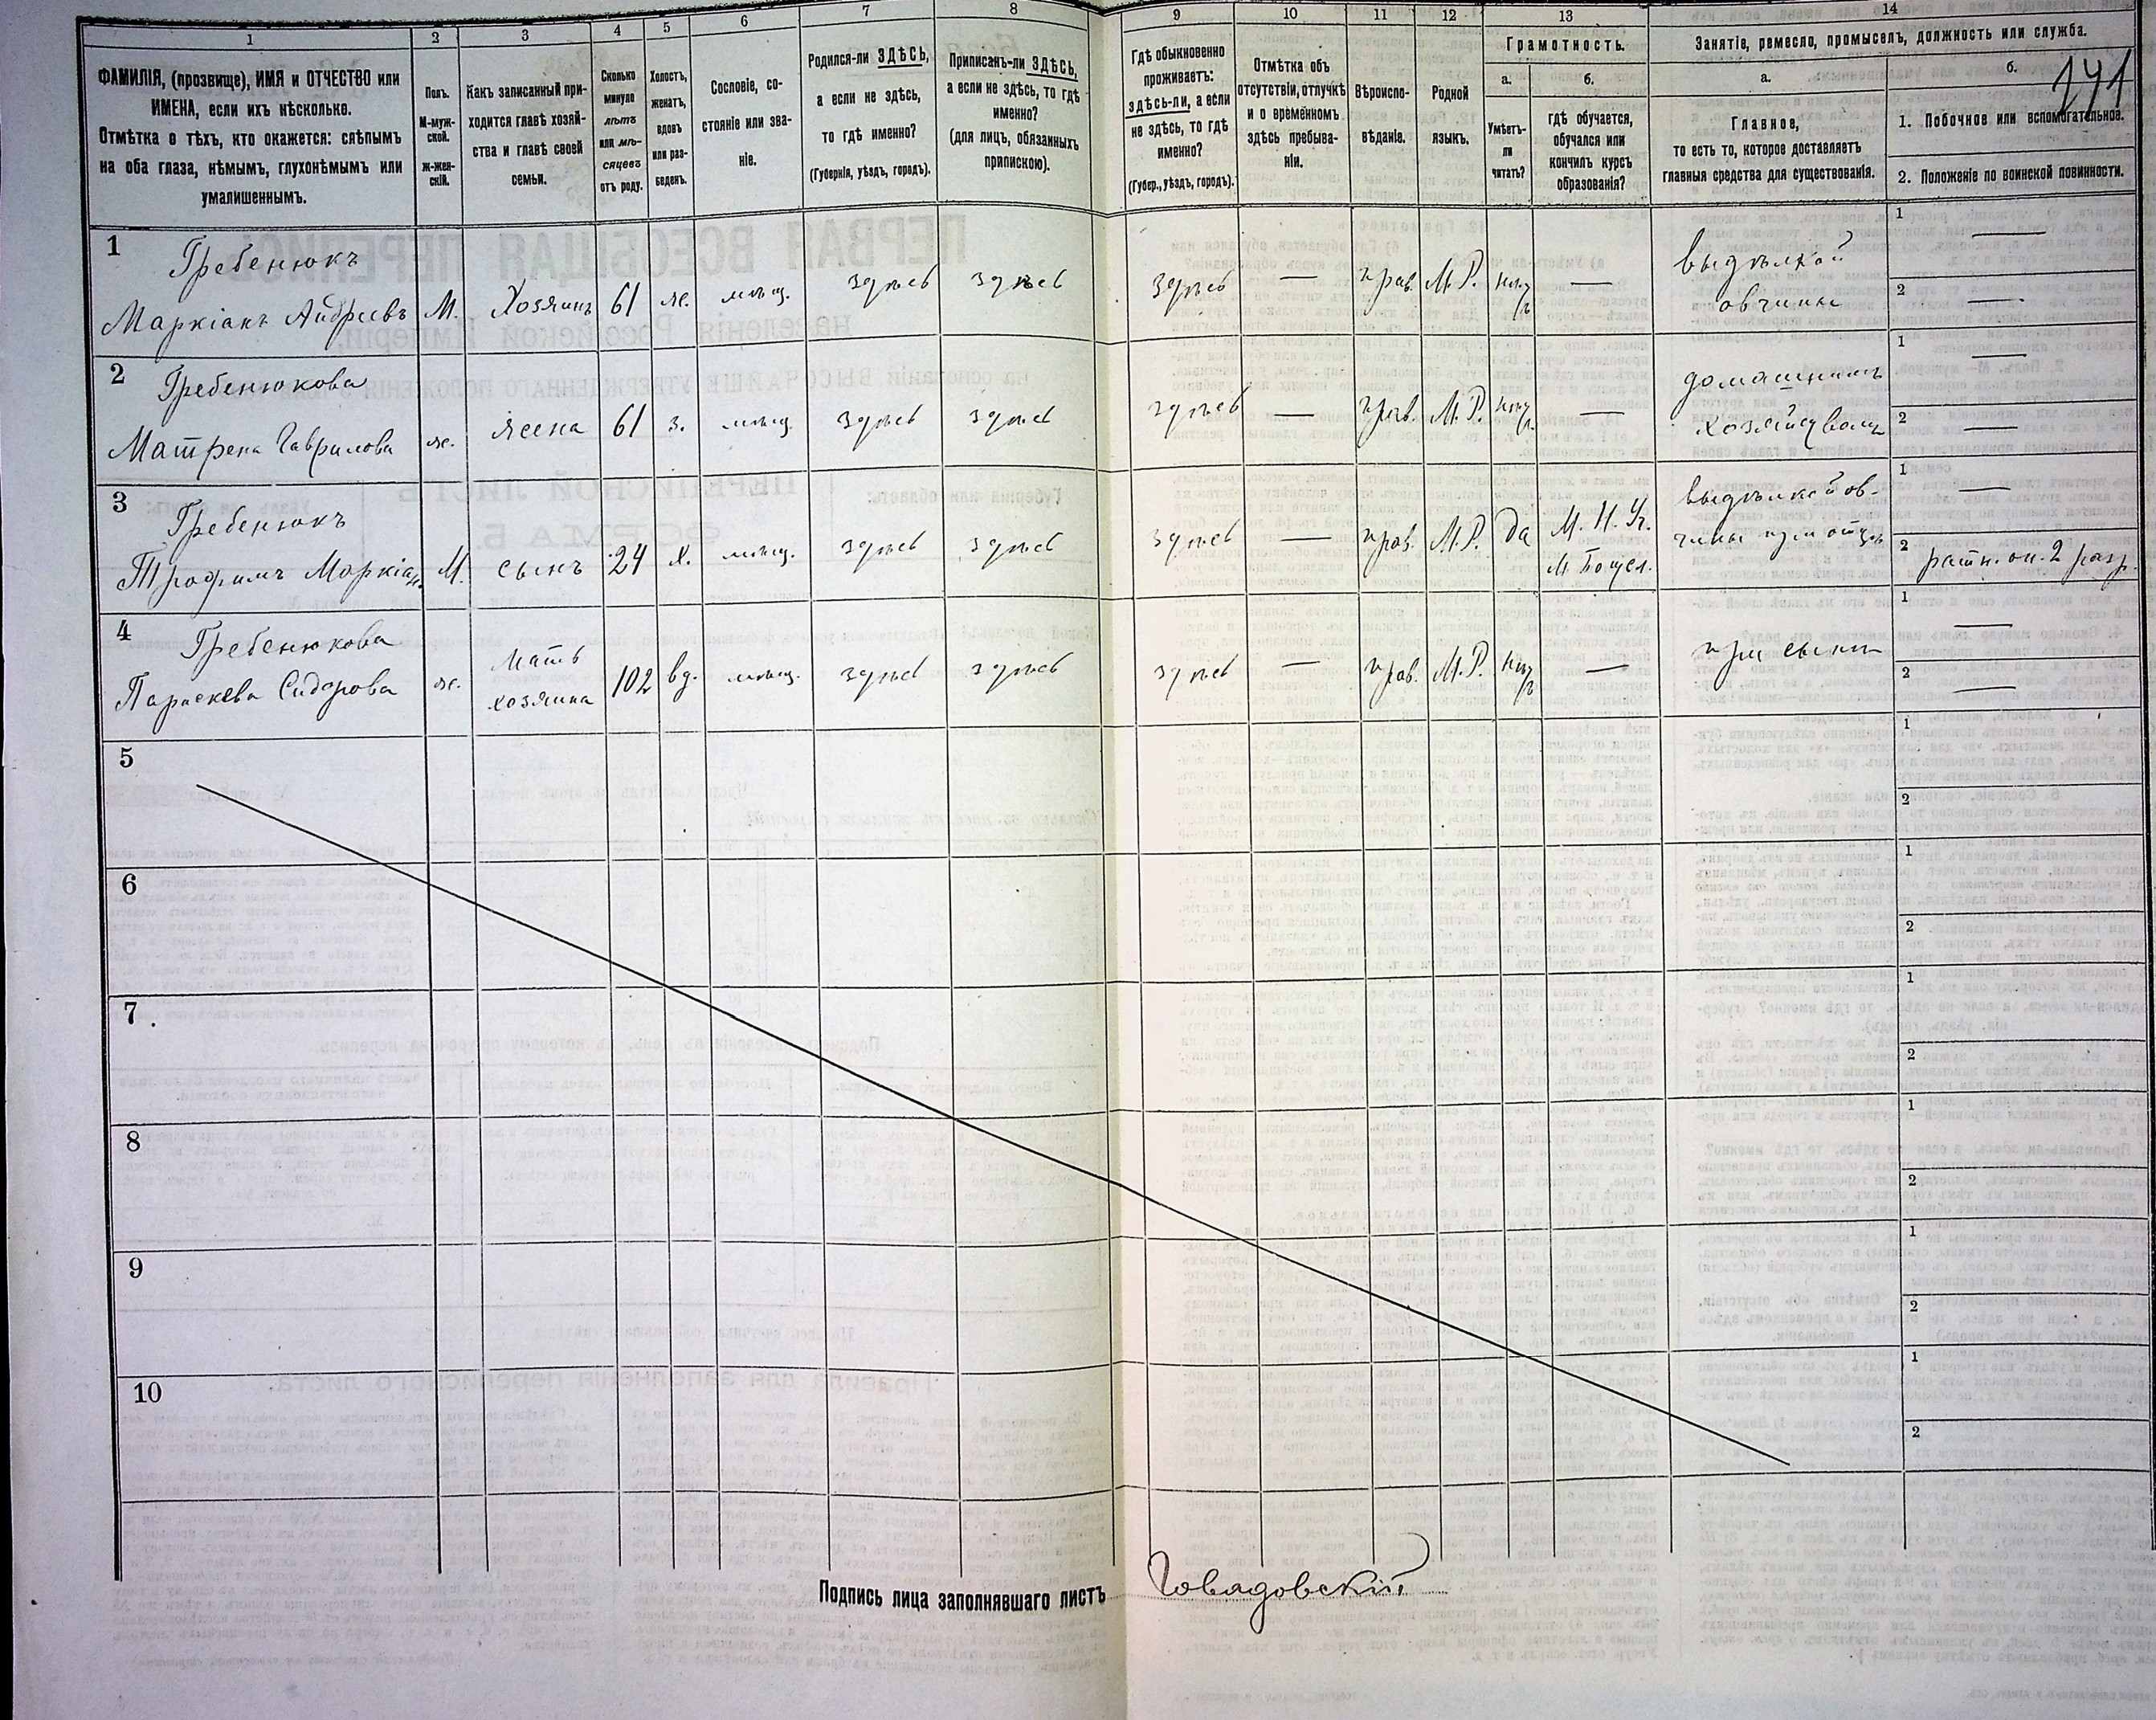 1 2 3 4 5 6 7 8 9 10 11 12 13 14
ФАМИЛІЯ, (прозвище), ИМЯ и ОТЧЕСТВО или
ИМЕНА, если ихъ нѣсколько.
Отмѣтка о тѣхъ, кто окажется: слѣпымъ
на оба глаза, нѣмымъ, глухонѣмымъ или
умалишеннымъ.
Полъ.
М-муж-
ской.
ж-жен-
скій.
Какъ записанный при-
ходится главѣ хозяй-
ства и главѣ своей
семьи.
Сколько
минуло
лѣтъ
или мѣ-
сяцевъ
отъ роду.
Холостъ,
женатъ,
вдовъ
или раз-
веденъ.
Сословіе, со-
стояніе или зва-
ніе.
Родился-ли ЗДѢСЬ,
а если не здѣсь,
то гдѣ именно?
(Губернія, уѣздъ, городъ).
Приписанъ-ли ЗДѢСЬ,
а если не здѣсь, то гдѣ
именно?
(для лицъ, обязанныхъ
припискою).
Гдѣ обыкновенно
проживаетъ:
здѣсь-ли, а если
не здѣсь, то гдѣ
именно?
(Губер., уѣздъ, городъ).
Отмѣтка объ
отсутствіи, отлучкѣ
и о временномъ
здѣсь пребыва-
ніи.
Вѣроиспо-
вѣданіе.
Родной
языкъ.
Грамотность.
а. б.
Умѣетъ-
ли
читать?
гдѣ обучается,
обучался или
кончилъ курсъ
образованія?
Занятіе, ремесло, промыселъ, должность или служба.
а. б.
Главное,
то есть то, которое доставляетъ
главныя средства для существованія.
1. Побочное или вспомогательное.
2. Положеніе по воинской повинности.
1
Гребенюкъ
Маркіанъ Андреевъ М. Хозяинъ 61 ж. мѣщ. здѣсь здѣсь здѣсь — прав. М.Р. нѣтъ —
выдѣлкой
овчины
1 —
2 —
2
Гребенюкова
Матрена Гаврилова ж. жена 61 з. мѣщ. здѣсь здѣсь здѣсь — прав. М.Р. нѣтъ —
домашнимъ
1 —
2 —
3
Гребенюкъ
Трофимъ М. сынъ 24 х. мѣщ. здѣсь здѣсь здѣсь — прав. М.Р. да
М. Н. Уч.
выдѣлкой ов-
чины при отцѣ
1 —
2 ратн. оп. 2 разр.
4
Гребенюкова
Параскева Сидорова ж.
мать
хозяина
102 вд. мѣщ. здѣсь здѣсь здѣсь — прав. М.Р. нѣтъ —
при сынѣ
1 —
2 —
5
1
2
6
1
2
7
1
2
8
1
2
9
1
2
10
1
2
Подпись лица заполнявшаго листъ